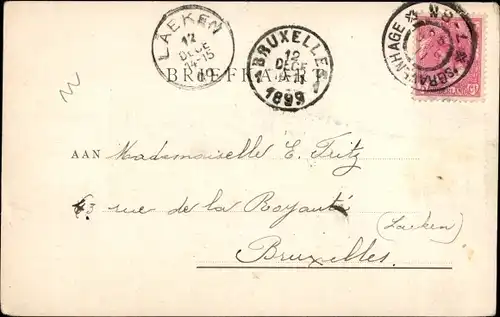 LAEKEN
12
DECE
14-15
BRUXELLES
12
DECE
1899
'S GRAVENHAGE
BRIEFKAART
AAN Mademoiselle E. Fritz
63 rue de la Royauté
(Laeken)
Bruxelles.